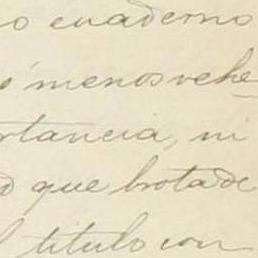 o cuaderno
ó menos vehe
rtancia, ni
d que brota de
l titulo con